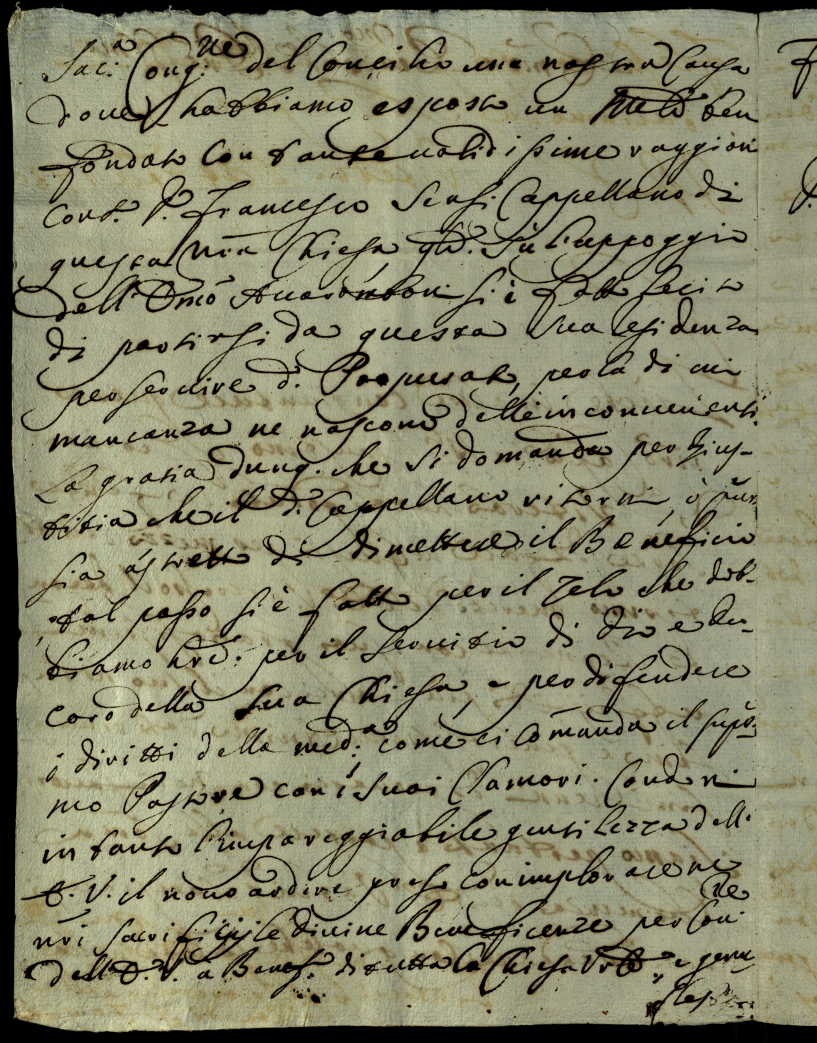 Sac.ª Cong.ne del Concilio una nostra Causa
dove habbiamo esposto un ben
fondato con tante validissime raggioni
cont. P. Francesco Sensi Cappellano di
questa nra Chiesa qle. Sù l'appoggio
dell' Emo si è fatto lecito
di partirsi da questa sua residenza
per servire d. Porporato, per la di cui
mancanza ne nascono delle inconvenienti.
La gratia dunq. che si domanda per Gius-
titia che il d. Cappellano ritorni, ò pur
sia astretto di dimettere il Beneficio
tal passo si è fatto per il zelo che dob-
biamo hre. per il Servitio di Dio e de-
coro della Sua Chiesa, e per difendere
i diritti della med.ª come ci comanda il supo-
mo Pastore con i suoi Clamori. Condoni
in tanto l'impareggiabile gentilezza dell'
E. V. il nro ardire preso con implorare ne
nri sacrificij le divine Beneficenze per Con.ne
dell' E. V. a Benef. di tutta la Chiesa e genu-